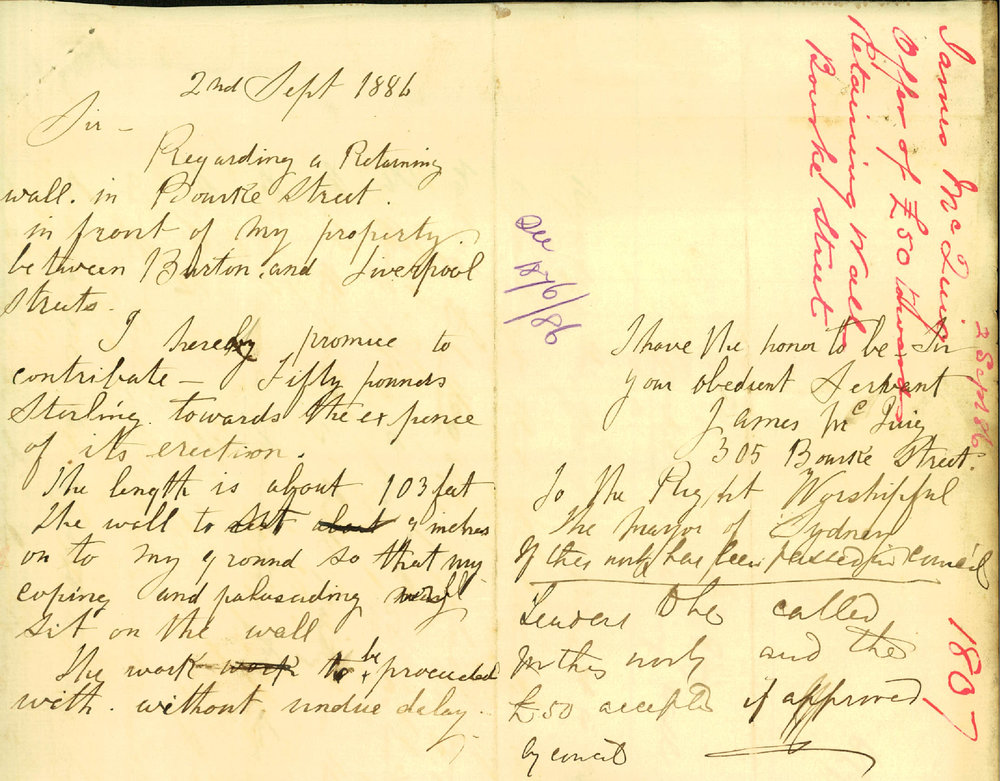 2nd Sept 1886
Sir -
Regarding a Retaining
wall. in Bourke Street.
in front of my property.
between Burton. and Liverpool
Streets.
I hereby promise to
contribute - Fifty pounds
Sterling. towards the expence
of its erection.
The length is about 103 feet
The wall to sit about 9 inches
on to my ground so that my
coping and palisading
sit on the wall
The work work to be proceeded
with. without undue delay.
see
1876/86
I have the honor to be - Sir
your obedient Servant
James Mc
305 Bourke Street.
To the Right Worshipful
The Mayor of Sydney
If this work has been passed in council
Tenders to be called
for this work and the
£50 accepted if approved
by council
James Mc
Offer of £50 towards
Retaining Wall
Bourke Street
2 Sept 86
1807